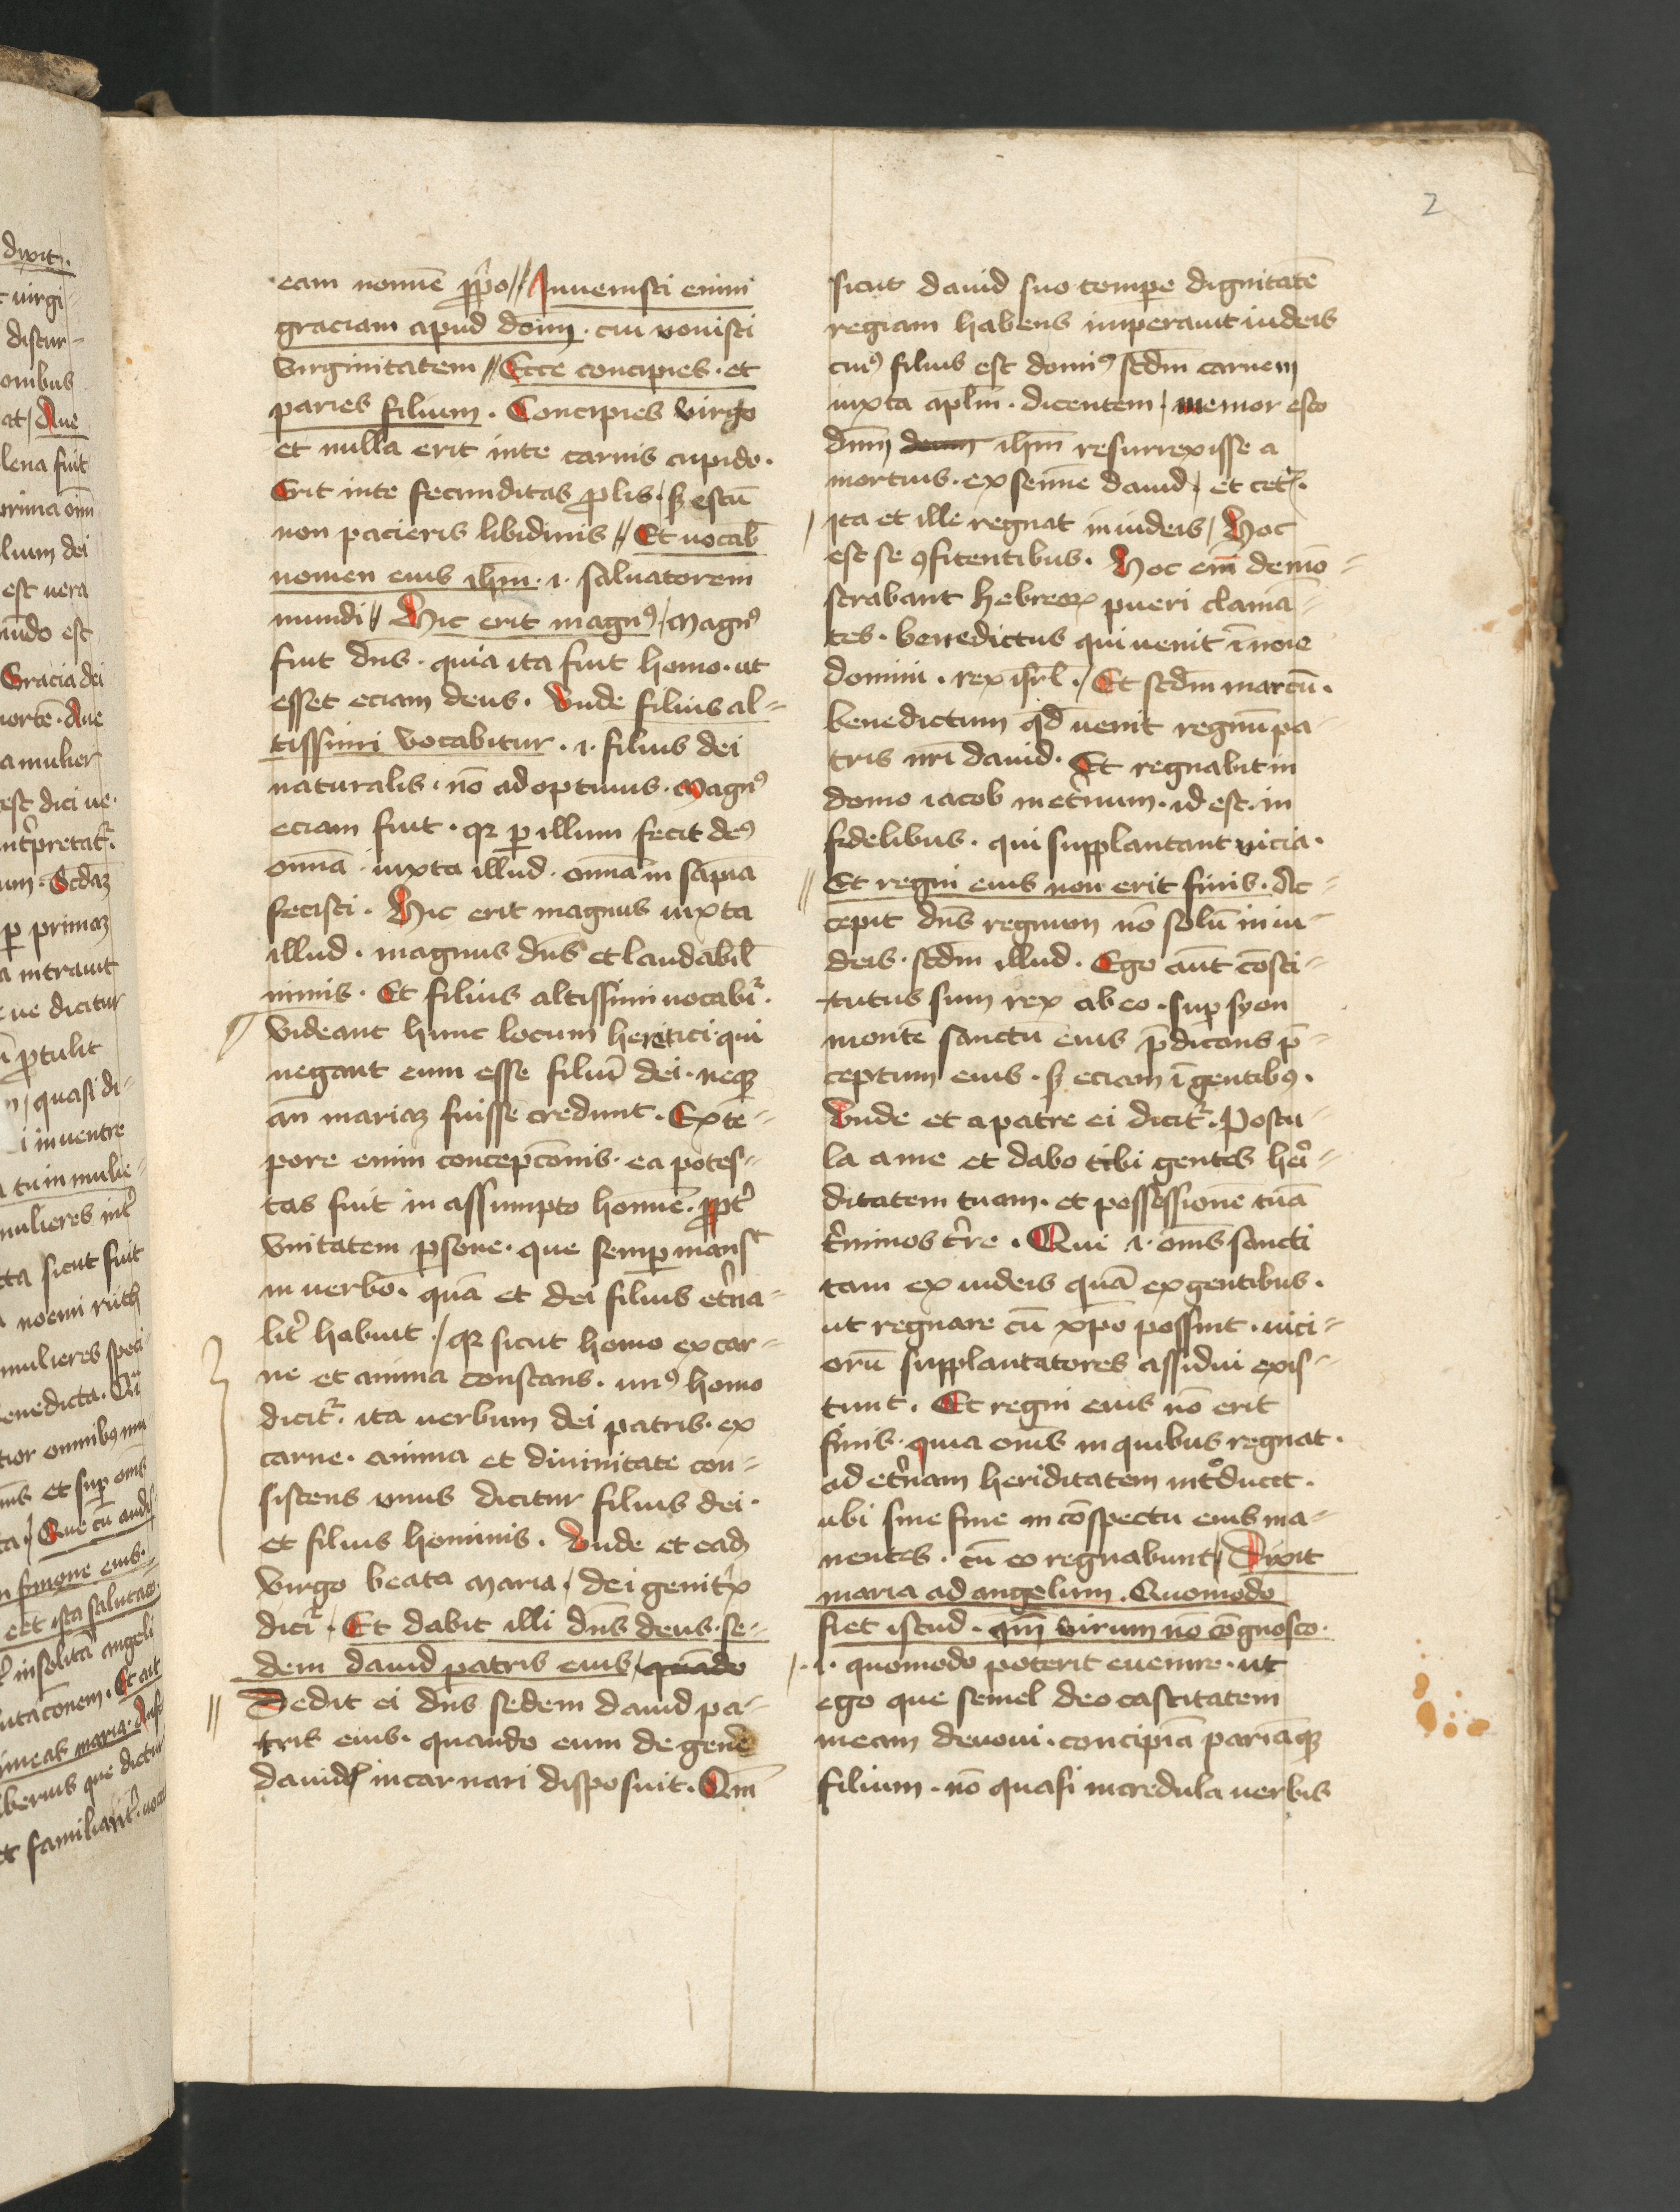 2
eam nomīe ꝓp̄o // Inuenisti enim
graciam apud dom̄ . cui vouisti
virginitatem // Ecce concipies . et
paries filium . Concipies virgo
et nulla erit inte carnis cupido .
Erit inte fecunditas ꝓlis / sꝫ estū
non pacieris libidinis // Et uocab̄
nomen eius ihm̄ . i . saluatorem
mundi // Hic erit magnꝰ / Magnꝰ
fuit dn̄s . quia ita fuit homo . ut
esset eciam deus . Vnde filius al=
tissimi vocabitur . i . filius dei
naturalis . nō adoptiuus . Magnꝰ
eciam fuit . qꝛ ꝑ illum fecit deꝰ
omnā . iuxta illud . omnā in sap̄ia
fecisti . Hic erit magnus iuxta
illud . magnus dn̄s et laudabil̄
nimis . Et filius altissimi uocabit᷑ .
Videant hunc locum heretici qui
negant eum esse filiū dei . neqꝫ
an̄ mariaꝫ fuisse credunt . Ex tē=
pore enim concepc̄onis . ea potes=
tas fuit in assumpto homīe . ꝓpt̄
vnitatem ꝑsone . que semꝑ mansͭ
in uerbo . quā et dei filius et̄na=
lit̄ habuit . / qꝛ sicut homo ex car=
ne et anima constans . unꝰ homo
dicit᷑ . ita uerbum dei patris . ex
carne . anima et diuinitate con=
sistens vnus dicitur filius dei .
et filius hominis . Vnde et eadꝫ
virgo beata maria . / dei genitͥx
dicit᷑ . Et dabit illi dn̄s deus . se=
dem dauid patris eius / quādo
Dedit ei dn̄s sedem dauid pa=
tris eius . quando eum de gen̄e
dauid incarnari disposuit . Qm̄
sicut dauid suo temꝑe dignitatē
regiam habens imperauit iudeis
cuiꝰ filius est domiꝰ scd̄m carnem
iuxta apl̄m . dicentem / memor esto
dn̄m deum ihm̄ resurrexisse a
mortuis . ex semīe dauid / et cet᷑ .
ita et ille regnat in iudeis / Hoc
est se ꝯfitentibus . Hoc em̄ demō=
strabant hebreoꝝ pueri clamā=
tes . benedictus qui uenit ī noīe
domini . rex isrl̄ . / Et scd̄m marcū .
benedictum qd̄ uenit regnū pa=
tris nr̄i dauid . Et regnabit in
domo iacob in et̄num . id est . in
fidelibus . qui supplantant uicia .
Et regni eius non erit finis . Ac=
cepit dn̄s regnum nō solū in iu=
deis . scd̄m illud . Ego aūt cōsti=
tutus sum rex ab eo . suꝑ syon
montē sanctū eius p̄dicans p̄=
ceptum eius . sꝫ eciam ī gentibꝰ .
Vnde et a patre ei dicit᷑ . Postu=
la a me et dabo tibi gentes her̄=
ditatem tuam . et possessionē tuā
t̄minos t̄re . Qui . i . om̄s sancti
tam ex iudeis quā ex gentibus .
ut regnare cū xp̄o possint . uici=
orū supplantatores assidui exis=
tunt . Et regni eius nō erit
finis . quia om̄s in quibus regnat .
ad et̄nam heriditatem intͦducet .
ubi sine fine in cōspectu eius ma=
nentes . cū eo regnabunt / Dixit
maria ad angelum . Quomodo
fiet istud . qm̄ virum nō cōgnosco .
. i . quomodo poterit euenire . ut
ego que semel deo castitatem
meam deuoui . concipiā pariāqꝫ
filium . nō quasi incredula uerbis